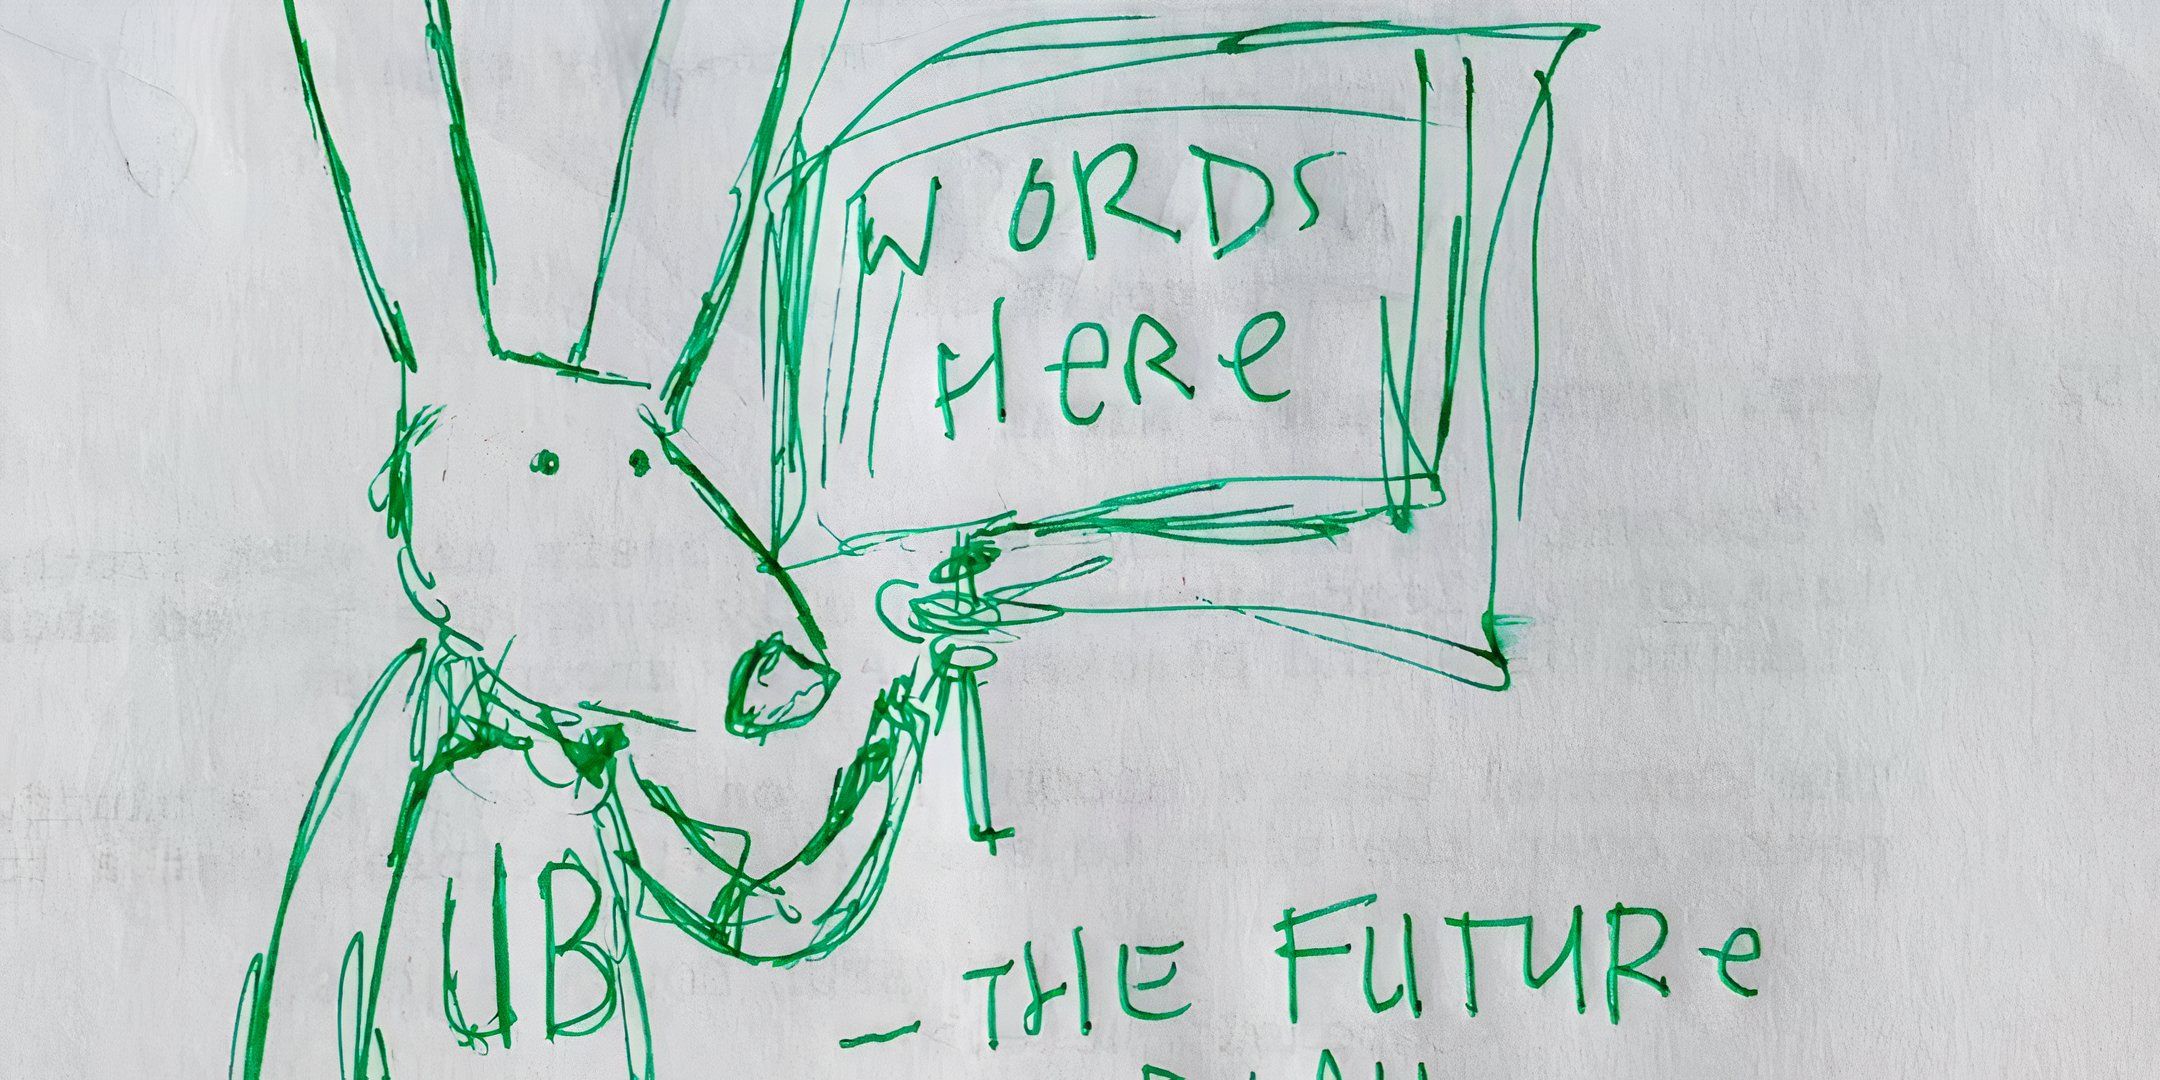 WORDS
HeRe
UB
— THE FUTURe